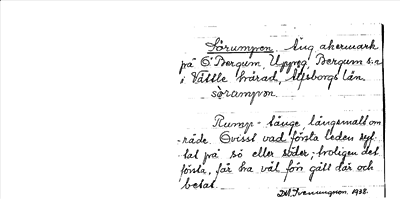 Sörumpon. Äng, åkermark
på Ö. Bergum, Uppeg. Bergum s:n
i Vättle härad, Älfsborgs län.
sòrumpon.
Rump - länge, långsmalt om
råde. Ovisst vad första leden syf
tat på sö eller söder; troligen det
första, får ha väl fön gått där och
betat.
1938.